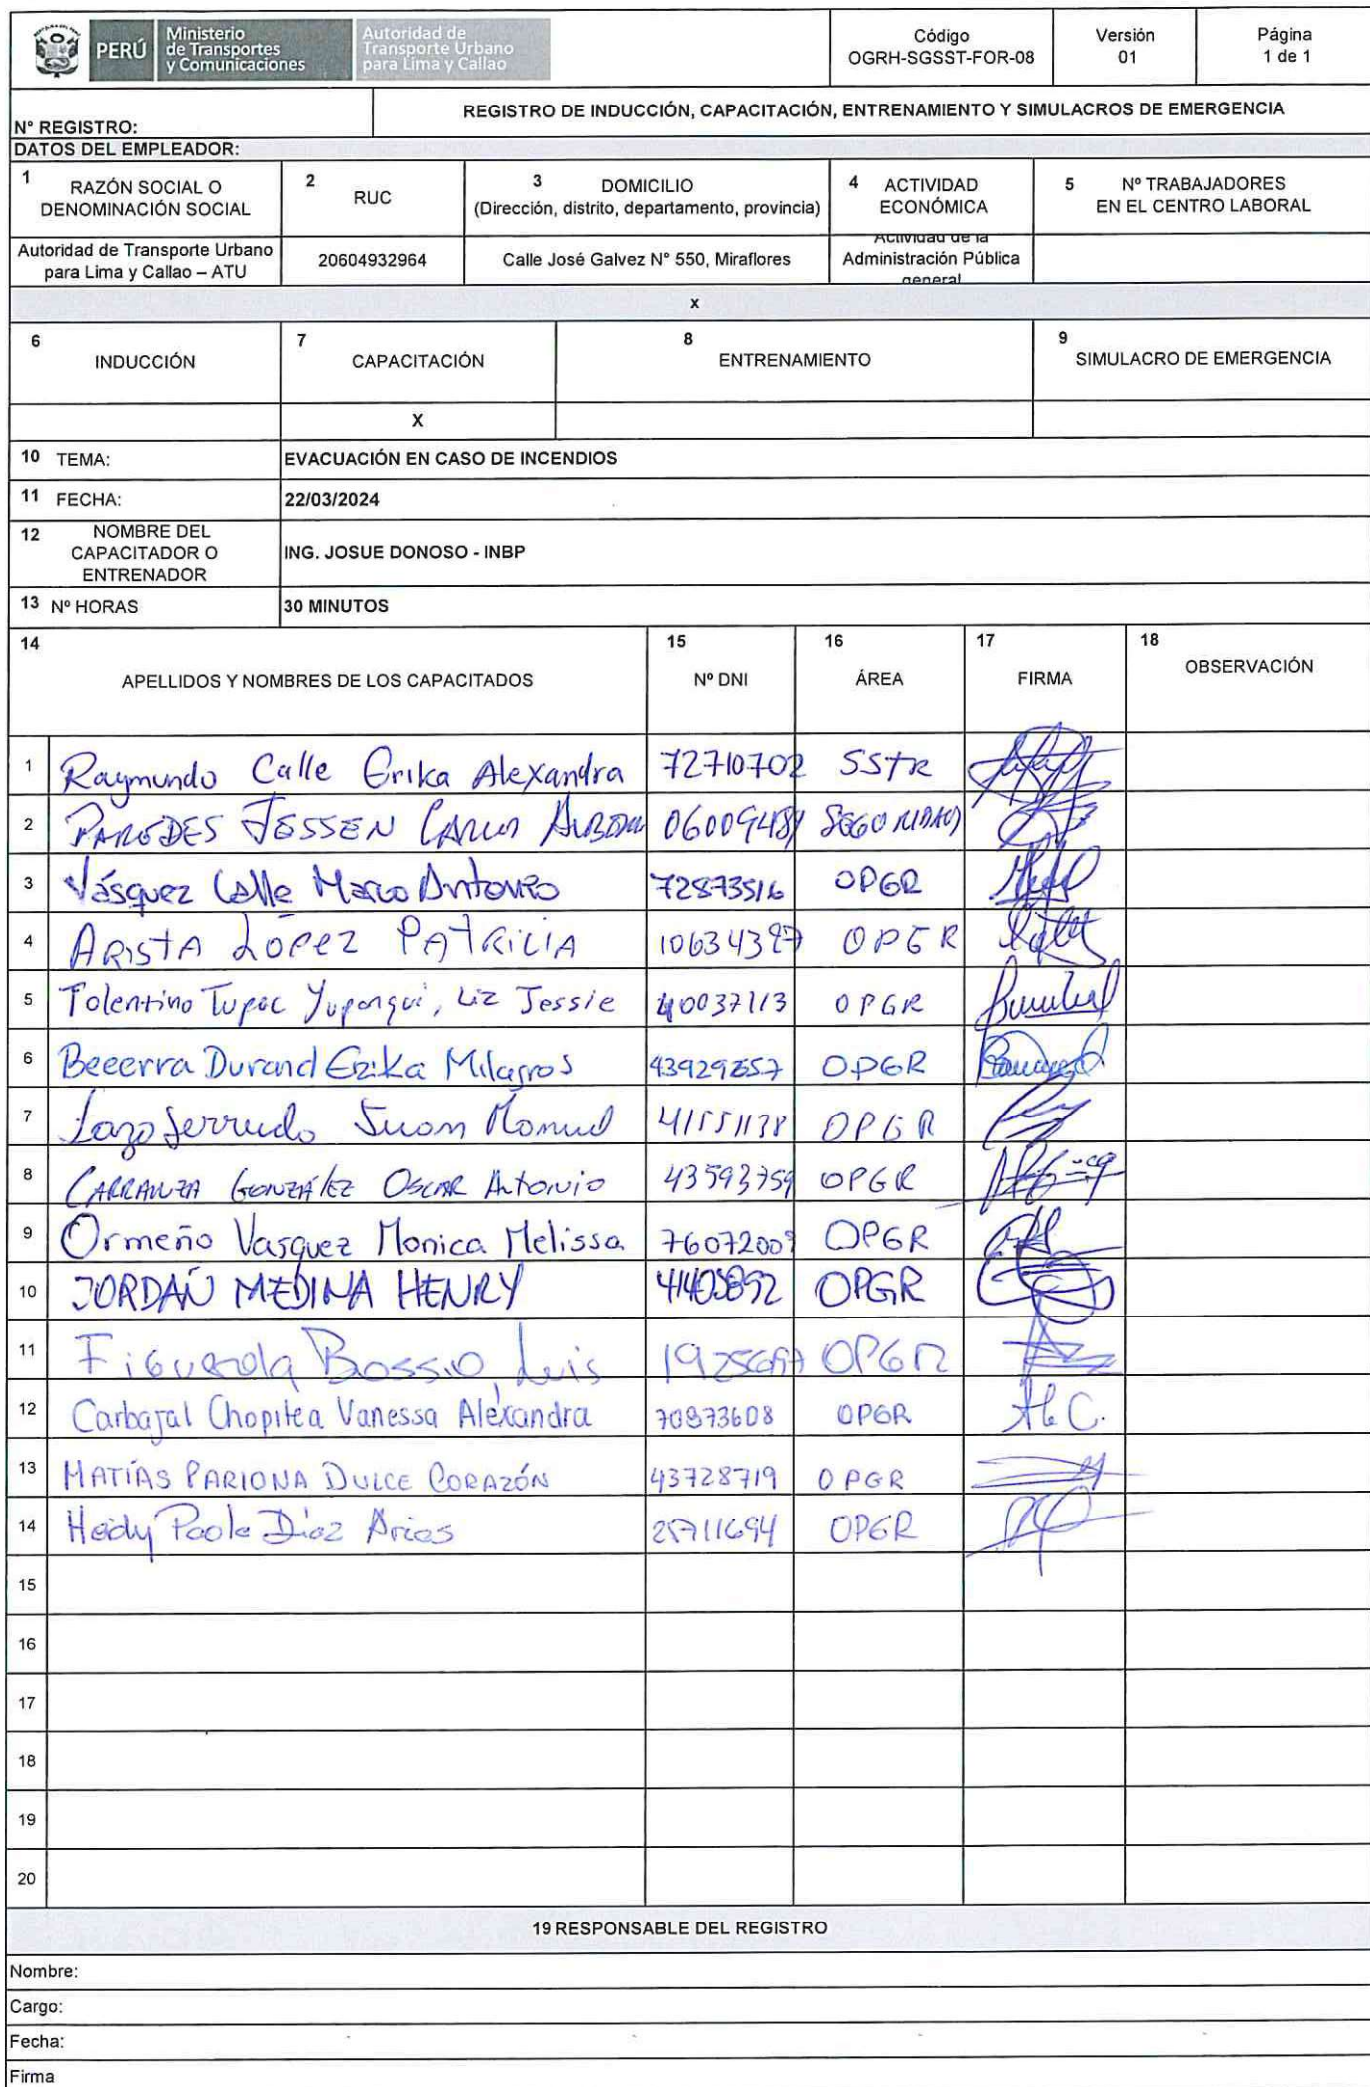 PERÚ
Ministerio
de Transportes
y Comunicaciones
Autoridad de
Transporte Urbano
para Lima y Callao
Código
OGRH-SGSST-FOR-08
Versión
01
Página
1 de 1
Nº REGISTRO:
REGISTRO DE INDUCCIÓN, CAPACITACIÓN, ENTRENAMIENTO Y SIMULACROS DE EMERGENCIA
DATOS DEL EMPLEADOR:
1 RAZÓN SOCIAL O
DENOMINACIÓN SOCIAL
2 RUC
3 DOMICILIO
(Dirección, distrito, departamento, provincia)
4 ACTIVIDAD
ECONÓMICA
5 Nº TRABAJADORES
EN EL CENTRO LABORAL
Autoridad de Transporte Urbano
para Lima y Callao – ATU
20604932964
Calle José Galvez N° 550, Miraflores
Actividad de la
Administración Pública
general
x
6 INDUCCIÓN
7 CAPACITACIÓN
8 ENTRENAMIENTO
9 SIMULACRO DE EMERGENCIA
X
10 TEMA: EVACUACIÓN EN CASO DE INCENDIOS
11 FECHA: 22/03/2024
12 NOMBRE DEL
CAPACITADOR O
ENTRENADOR
ING. JOSUE DONOSO - INBP
13 Nº HORAS 30 MINUTOS
14 APELLIDOS Y NOMBRES DE LOS CAPACITADOS
15 Nº DNI
16 ÁREA
17 FIRMA
18 OBSERVACIÓN
1 Raymundo Calle Erika Alexandra 72710702 SSTR
2 PAREDES JESSEN CARLOS
3 Vásquez Calle Marco Antonio 72873516 OPGR
4 ARISTA LOPEZ PATRICIA OPGR
5 Tolentino Tupac Yupanqui, Liz Jessie 40037113 OPGR
6 Becerra Durand Erika Milagros OPGR
7 Juan Manuel OPGR
8 CARRANZA GONZÁLEZ OSCAR Antonio 43593759 OPGR
9 Ormeño Vasquez Monica Melissa OPGR
10 JORDÁN MEDINA HENRY 41405892 OPGR
11 Figuerola Bossio, Luis OPGR
12 Carbajal Chopitea Vanessa Alexandra 70873608 OPGR
13 MATÍAS PARIONA DULCE CORAZÓN 43728719 OPGR
14 Heidy Paola Díaz Arias 25711694 OPGR
15
16
17
18
19
20
19 RESPONSABLE DEL REGISTRO
Nombre:
Cargo:
Fecha:
Firma